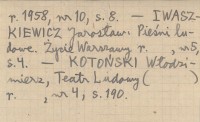 r. 1958, nr 10, s. 8. — IWASZ-
KIEWICZ Jarosław: Pieśni lu-
dowe. Życie Warszawy r. , nr 5,
s. 4. — KOTOŃSKI Włodzi-
mierz, Teatr Ludowy ( )
r. , nr 4, s. 190.